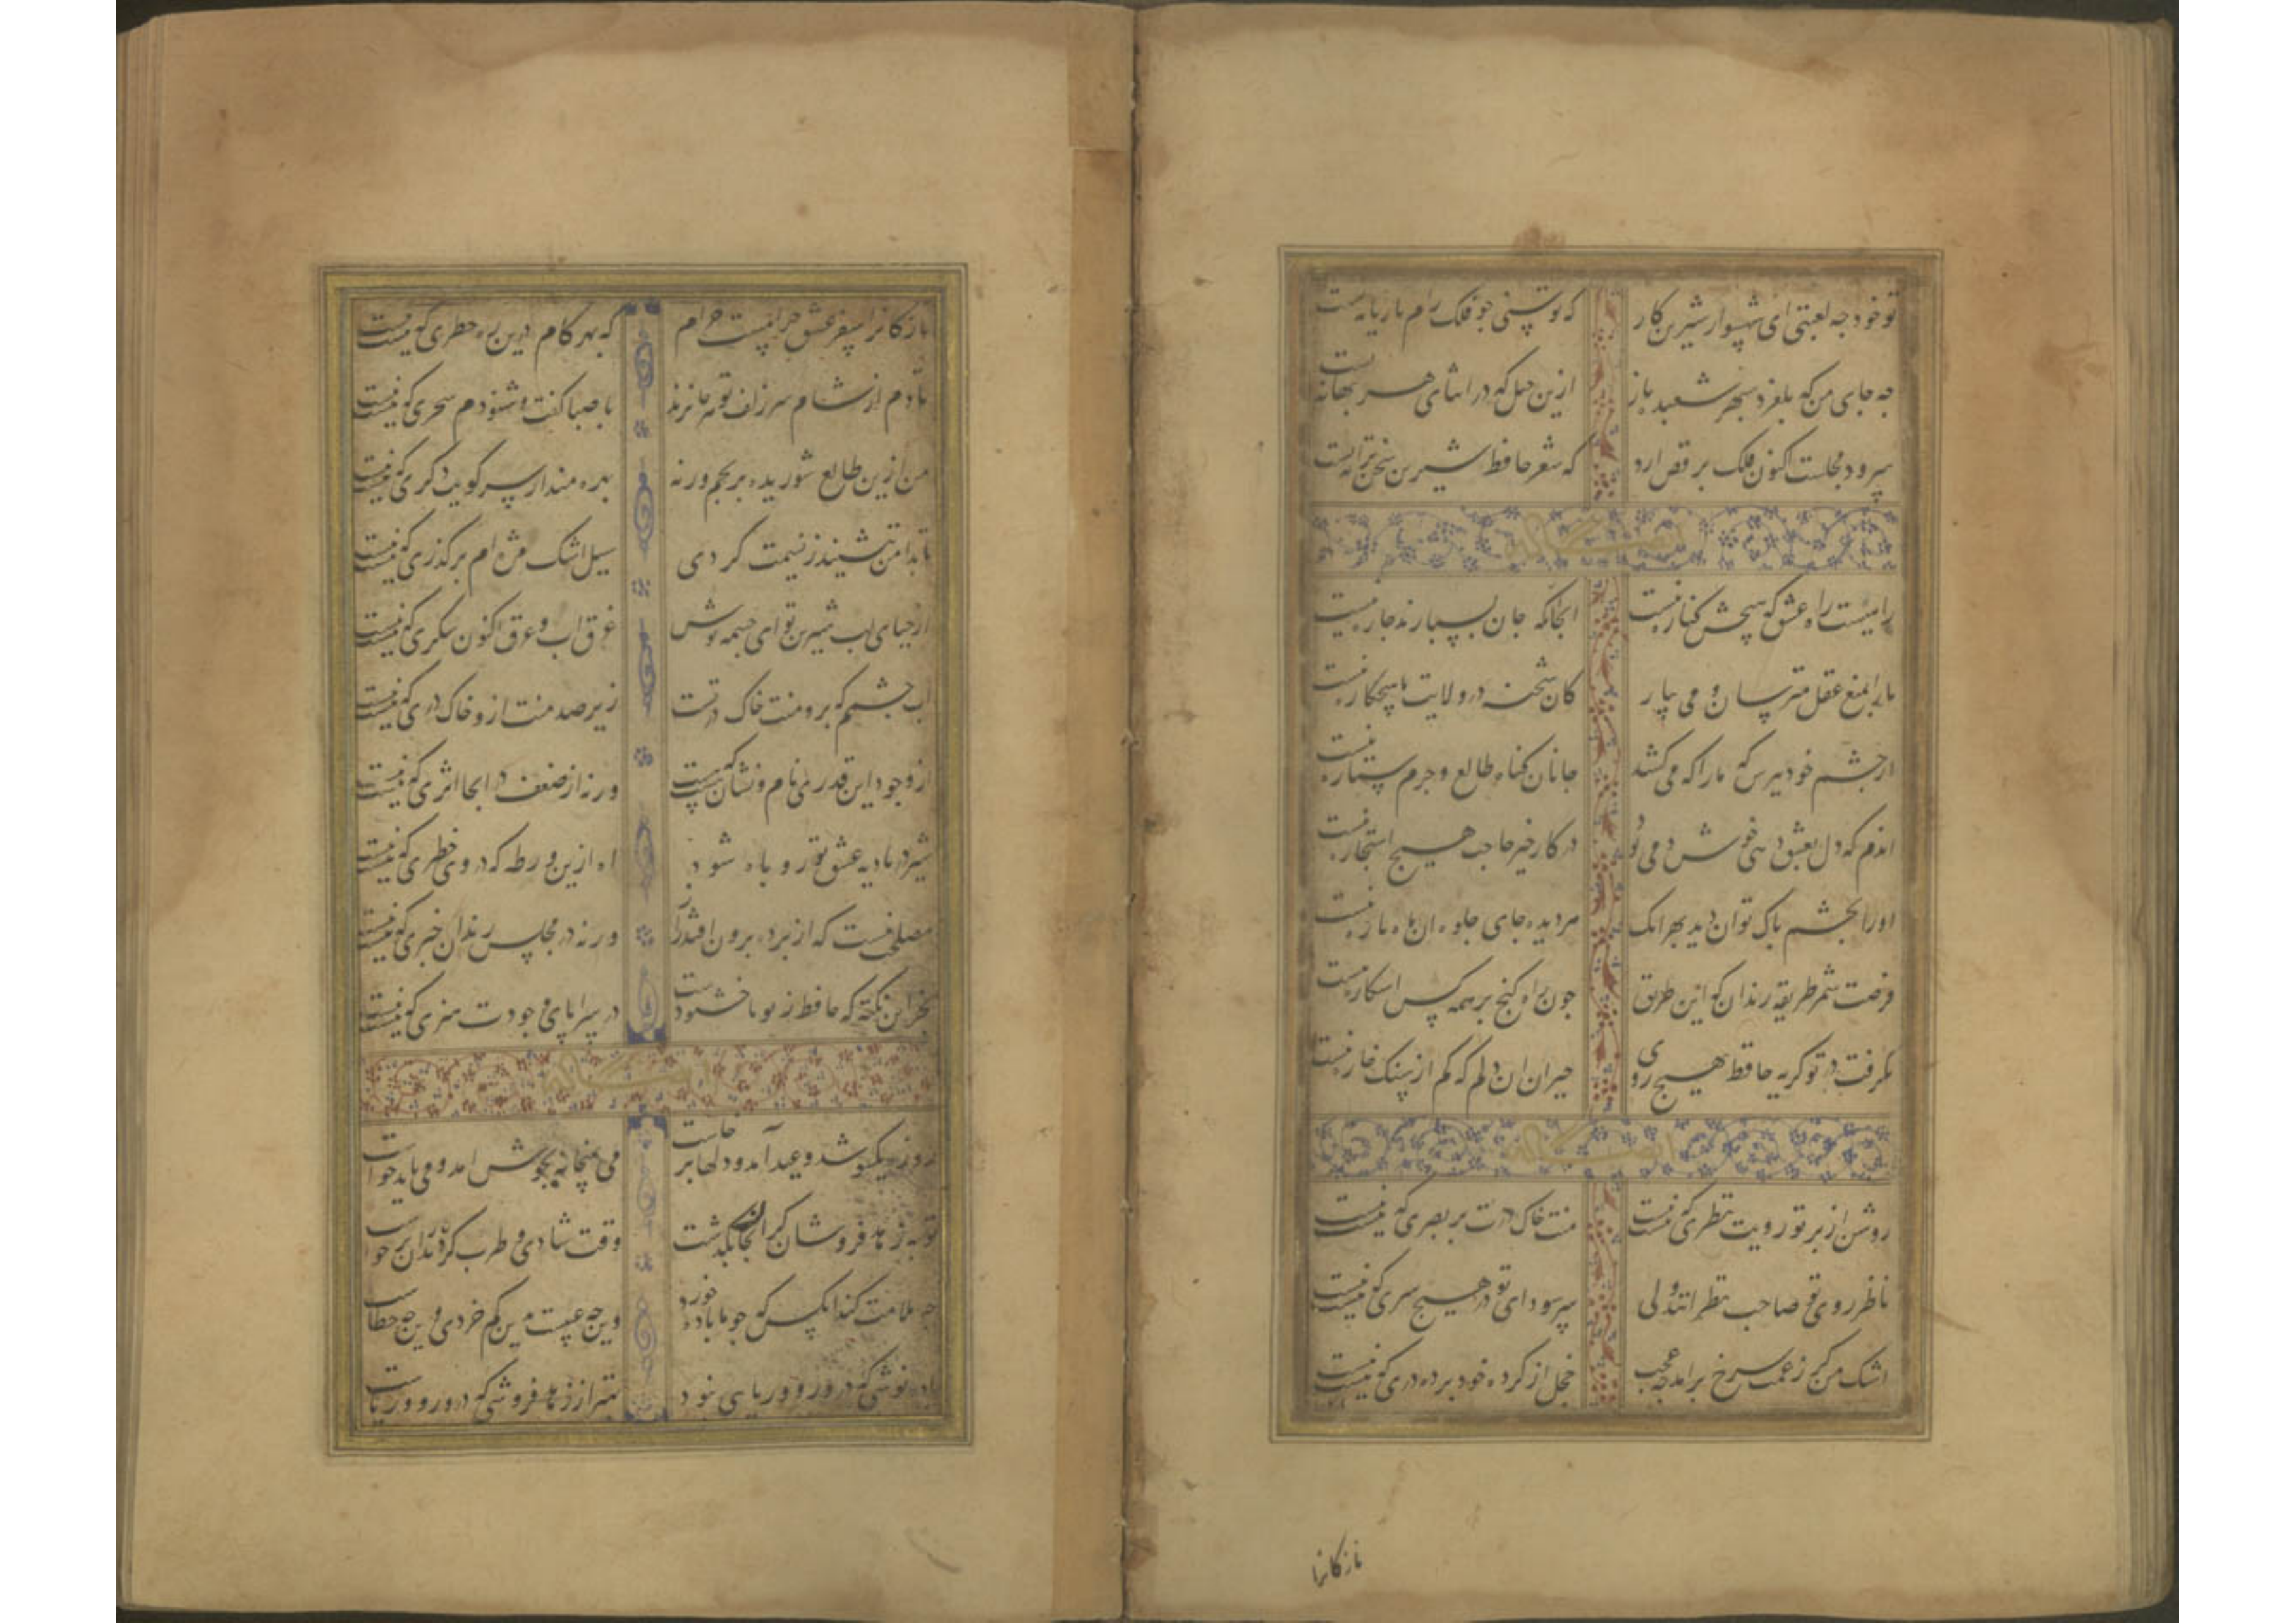 تو خود چه لعبتی ای شهسوار شیرین کار که توسنی جو فلک رام تازیانه تست
چه جای من که بلغزد سپهر شعبده باز ازین حیل که در انبانه بهانه تست
سرود مجلست اکنون فلک برقص ارد که شعر حافظ شیرین سخن ترانه تست
وله ایضا
راهیست راه عشق که هیچش کناره نیست انجا که جان بسپارند چاره نیست
مارا بمنع عقل مترسان و می بیار کان شحنه در ولایت ما هیچکاره نیست
از چشم خود بپرس که مارا که می کشد جانان کناه طالع و جرم ستاره نیست
اندم که دل بعشق دهی خوش دمی بود در کار خیر حاجت هیچ استخاره نیست
اورا بچشم پاک توان دید بهر انک هر دیده جای جلوه ان ماه پاره نیست
فرصت شمر طریقه رندان که این طریق چون راه کنج بر همه کس اشکاره نیست
نگرفت در تو کریه حافظ بهیچ روی حیران ان دلم که کم از سنک خاره نیست
روشن از پرتو رویت نظری نیست که نیست منت خاک درت بر بصری نیست که نیست
ناظر روی تو صاحب نظرانند ولی سر سودای تو در هیچ سری نیست که نیست
اشک من کر ز غمت سرخ برامد چه عجب خجل از کرده خود پرده دری نیست که نیست
نازکانرا
نازکانرا سفر عشق حرامست حرام که بهر کام درین ره خطری نیست که نیست
تا دم از شام سر زلف تو هر جا نزند با صبا کفت و شنودم سحری نیست که نیست
من ازین طالع شوریده برنجم ورنه بهره مند از سر کویت دکری نیست که نیست
تا بدامن ننشیند ز نسیمت کردی سیل اشک مژه ام بر کذری نیست که نیست
از حیای لب شیرین تو ای چشمه نوش غرق اب و عرق اکنون شکری نیست که نیست
اب چشمم که برو منت خاک در تست زیر صد منت از و خاک دری نیست که نیست
از وجود این قدرم نام و نشان هست که هست ورنه از ضعف در انجا اثری نیست که نیست
شیر در بادیه عشق تو روباه شود اه ازین ورطه که در وی خطری نیست که نیست
مصلحت نیست که از پرده برون افتد راز ورنه در مجلس رندان خبری نیست که نیست
بجز این نکته که حافظ ز تو ناخشنودست در سراپای وجودت هنری نیست که نیست
روزه یکسو شد و عید آمد و دلها برخاست می بمیخانه بجوش امد و می باید خواست
توبه زهد فروشان کران جان بکذشت وقت شادی و طرب کردن رندان برخاست
چه ملامت کند انکس که چو ما باده خورد وین چه عیبست بدین کم خردی وین چه خطاست
باده نوشی که درو روی و ریایی نبود بهتر از زهد فروشی که درو روی و ریاست